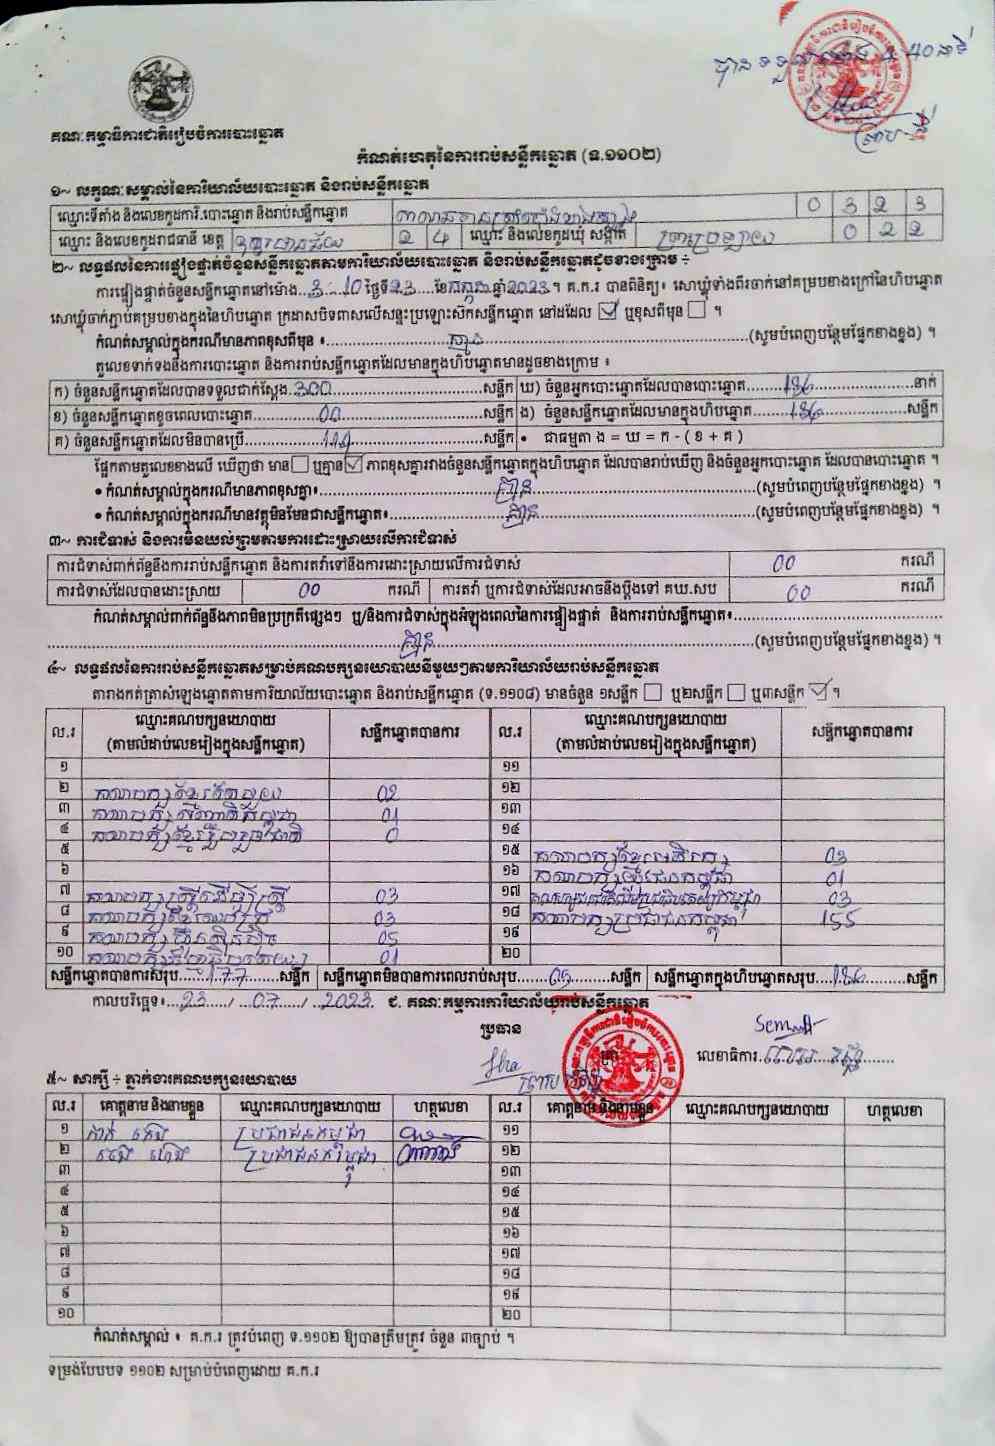 បានទទួលម៉ោង 4 40នាទី
គណៈកម្មាធិការជាតិរៀបចំការបោះឆ្នោត
កំណត់ហេតុនៃការរាប់សន្លឹកឆ្នោត (ទ.១១០២)
១~ លក្ខណៈសម្គាល់នៃការិយាល័យបោះឆ្នោត និងរាប់សន្លឹកឆ្នោត
ឈ្មោះទីតាំង និងលេខកូដការិ.បោះឆ្នោត និងរាប់សន្លឹកឆ្នោត 0 3 2 3
ឈ្មោះ និងលេខកូដរាជធានី ខេត្ត 2 4 ឈ្មោះ និងលេខកូដឃុំ សង្កាត់ 0 2 2
២~ លទ្ធផលនៃការផ្ទៀងផ្ទាត់ចំនួនសន្លឹកឆ្នោតតាមការិយាល័យបោះឆ្នោត និងរាប់សន្លឹកឆ្នោតដូចខាងក្រោម ÷
ការផ្ទៀងផ្ទាត់ចំនួនសន្លឹកឆ្នោតនៅម៉ោង 3:10 ថ្ងៃទី23 ខែកក្កដា ឆ្នាំ2023។ គ.ក.រ បានពិនិត្យ៖ សោឃ្មុំទាំងពីរចាក់នៅគម្របខាងក្រៅនៃហិបឆ្នោត
សោឃ្មុំចាក់ភ្ជាប់គម្របខាងក្នុងនៃហិបឆ្នោត ក្រដាសបិទពាសលើសន្ទះប្រឡោះស៊កសន្លឹកឆ្នោត នៅដដែល ☑ ឬខុសពីមុន ☐ ។
កំណត់សម្គាល់ក្នុងករណីមានភាពខុសពីមុន ៖ គ្មាន (សូមបំពេញបន្ថែមផ្នែកខាងខ្នង) ។
តួលេខទាក់ទងនឹងការបោះឆ្នោត និងការរាប់សន្លឹកឆ្នោតដែលមានក្នុងហិបឆ្នោតមានដូចខាងក្រោម ៖
ក) ចំនួនសន្លឹកឆ្នោតដែលបានទទួលជាក់ស្តែង 300 សន្លឹក ឃ) ចំនួនអ្នកបោះឆ្នោតដែលបានបោះឆ្នោត 186 នាក់
ខ) ចំនួនសន្លឹកឆ្នោតខូចពេលបោះឆ្នោត 00 សន្លឹក ង) ចំនួនសន្លឹកឆ្នោតដែលមានក្នុងហិបឆ្នោត 186 សន្លឹក
គ) ចំនួនសន្លឹកឆ្នោតដែលមិនបានប្រើ 114 សន្លឹក • ជាធម្មតា ង = ឃ = ក - ( ខ + គ )
ផ្អែកតាមតួលេខខាងលើ ឃើញថា មាន ☐ ឬគ្មាន ☑ ភាពខុសគ្នារវាងចំនួនសន្លឹកឆ្នោតក្នុងហិបឆ្នោត ដែលបានរាប់ឃើញ និងចំនួនអ្នកបោះឆ្នោត ដែលបានបោះឆ្នោត ។
• កំណត់សម្គាល់ក្នុងករណីមានភាពខុសគ្នា៖ គ្មាន (សូមបំពេញបន្ថែមផ្នែកខាងខ្នង) ។
• កំណត់សម្គាល់ក្នុងករណីមានវត្ថុមិនមែនជាសន្លឹកឆ្នោត៖ គ្មាន (សូមបំពេញបន្ថែមផ្នែកខាងខ្នង) ។
៣~ ការជំទាស់ និងការមិនយល់ព្រមតាមការដោះស្រាយលើការជំទាស់
ការជំទាស់ពាក់ព័ន្ធនឹងការរាប់សន្លឹកឆ្នោត និងការតវ៉ាទៅនឹងការដោះស្រាយលើការជំទាស់ 00 ករណី
ការជំទាស់ដែលបានដោះស្រាយ 00 ករណី ការតវ៉ា ឬការជំទាស់ដែលអាចនឹងប្តឹងទៅ គឃ.សប 00 ករណី
កំណត់សម្គាល់ពាក់ព័ន្ធនឹងភាពមិនប្រក្រតីផ្សេងៗ ឬ/និងការជំទាស់ក្នុងអំឡុងពេលនៃការផ្ទៀងផ្ទាត់ និងការរាប់សន្លឹកឆ្នោត៖
គ្មាន (សូមបំពេញបន្ថែមផ្នែកខាងខ្នង) ។
៤~ លទ្ធផលនៃការរាប់សន្លឹកឆ្នោតសម្រាប់គណបក្សនយោបាយនីមួយៗតាមការិយាល័យរាប់សន្លឹកឆ្នោត
តារាងកត់ត្រាសំឡេងឆ្នោតតាមការិយាល័យបោះឆ្នោត និងរាប់សន្លឹកឆ្នោត (ទ.១១០៨) មានចំនួន ១សន្លឹក ☐ ឬ២សន្លឹក ☐ ឬ៣សន្លឹក ☑ ។
ល.រ ឈ្មោះគណបក្សនយោបាយ សន្លឹកឆ្នោតបានការ ល.រ ឈ្មោះគណបក្សនយោបាយ សន្លឹកឆ្នោតបានការ
(តាមលំដាប់លេខរៀងក្នុងសន្លឹកឆ្នោត) (តាមលំដាប់លេខរៀងក្នុងសន្លឹកឆ្នោត)
១ ១១
២ គណបក្សខ្មែរ 02 ១២
៣ គណបក្ស 01 ១៣
៤ គណបក្សខ្មែរ 0 ១៤
៥ ១៥ គណបក្សខ្មែរ 03
៦ ១៦ គណបក្សយុវជនកម្ពុជា 01
៧ គណបក្សស្ត្រីដើម្បីស្ត្រី 03 ១៧ 03
៨ គណបក្ស 03 ១៨ គណបក្សប្រជាជនកម្ពុជា 155
៩ គណបក្ស 05 ១៩
១០ គណបក្ស 01 ២០
សន្លឹកឆ្នោតបានការសរុប 177 សន្លឹក សន្លឹកឆ្នោតមិនបានការពេលរាប់សរុប 09 សន្លឹក សន្លឹកឆ្នោតក្នុងហិបឆ្នោតសរុប 186 សន្លឹក
កាលបរិច្ឆេទ៖ 23 / 07 / 2023 ៩. គណៈកម្មការការិយាល័យរាប់សន្លឹកឆ្នោត
ប្រធាន
លេខាធិការ
៥~ សាក្សី ÷ ភ្នាក់ងារគណបក្សនយោបាយ
ល.រ គោត្តនាម និងនាមខ្លួន ឈ្មោះគណបក្សនយោបាយ ហត្ថលេខា ល.រ គោត្តនាម និងនាមខ្លួន ឈ្មោះគណបក្សនយោបាយ ហត្ថលេខា
១ ប្រជាជនកម្ពុជា ១១
២ ប្រជាជនកម្ពុជា ១២
៣ ១៣
៤ ១៤
៥ ១៥
៦ ១៦
៧ ១៧
៨ ១៨
៩ ១៩
១០ ២០
កំណត់សម្គាល់ ៖ គ.ក.រ ត្រូវបំពេញ ទ.១១០២ ឱ្យបានត្រឹមត្រូវ ចំនួន ៣ច្បាប់ ។
ទម្រង់បែបបទ ១១០២ សម្រាប់បំពេញដោយ គ.ក.រ